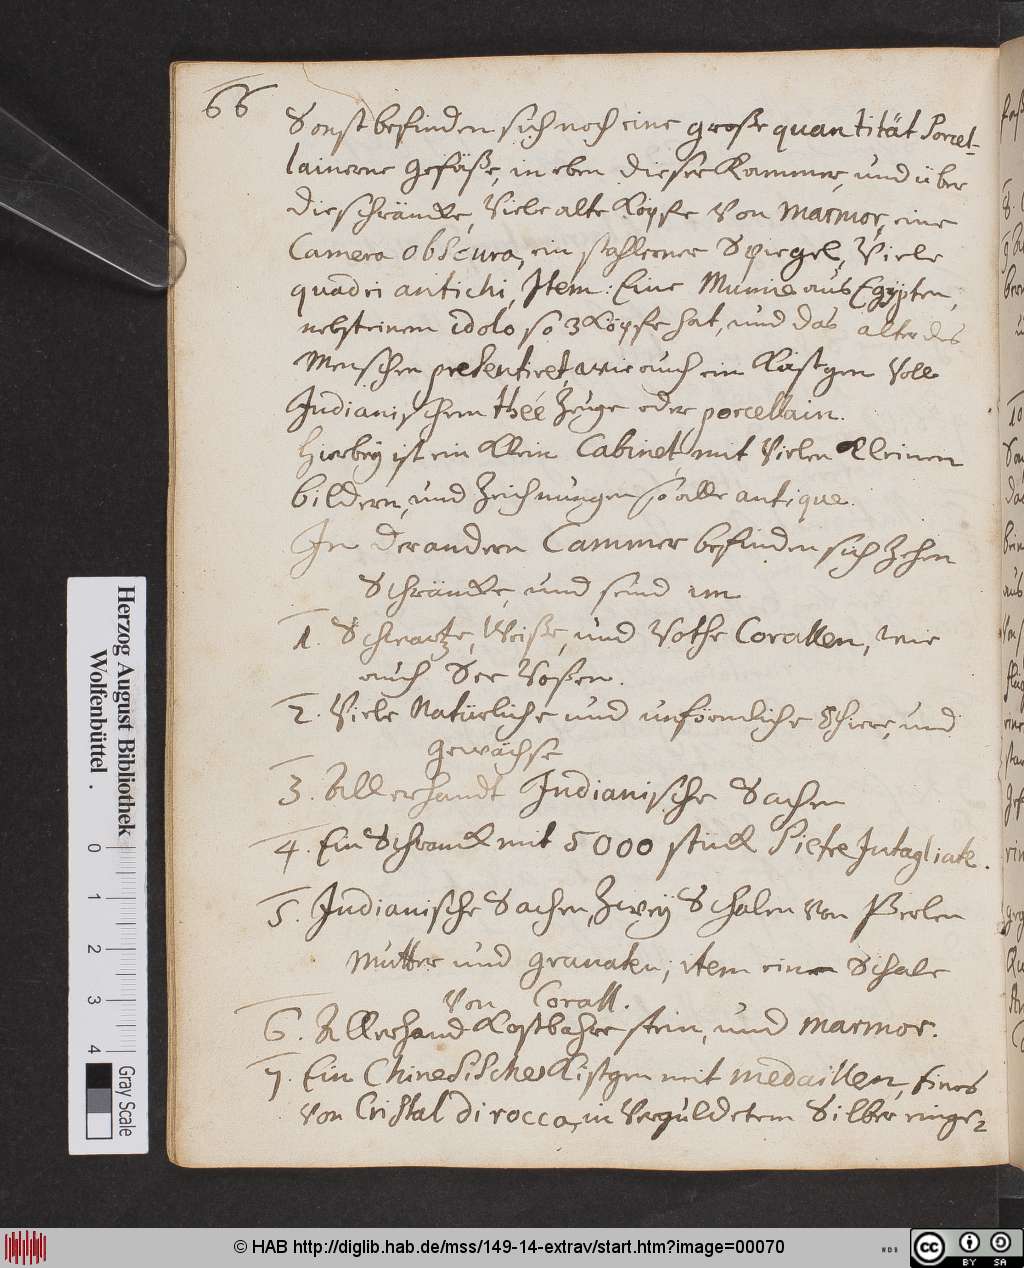 66
Sonst befinden sich noch eine große quantität Porcel-
lainerne Gefäße, in eben dieser Kammer, und über
die schräncke, Viele alte Köpfe Von Marmor, eine
Camera obscura, ein stahlerner Spiegel, Viele
quadri antichi, Item: Eine Mumie aus Egÿpten,
nebst einem idolo, so 3 Köpfe hat, und das alter des
Menschen presentiret, wie auch ein Kästgen Voll
Indianischem theé Zeuge oder porcellain.
Hierbeÿ ist ein Klein Cabinet, mit Vielen Kleinen
bildern, und Zeichnungen so alle antique.
In der andern Cammer befinden sich Zehen
Schräncke, und seind im
1. Schwartze, Weiße, und Rothe Corallen, wie
auch See Roßen.
2. Viele Natürliche und unförmliche Thiere, und
Gewächse
3. Allerhandt Indianische Sachen
4. Ein Schranck mit 5000 stück Pietre Intagliate.
5. Indianische Sachen, Zweÿ Schalen von Perlen
Mutter und Granaten, item eine Schale
Von Corall.
6. Allerhand Kostbahre stein, und marmor.
7. Ein Chinesisches Kistgen mit medaillen, Eines
Von Cristal di rocca, in Verguldetem Silber einge-
Herzog August Bibliothek
Wolfenbüttel.
0 1 2 3 4
Gray Scale
© HAB http://diglib.hab.de/mss/149-14-extrav/start.htm?image=00070
WDB
cc BY SA